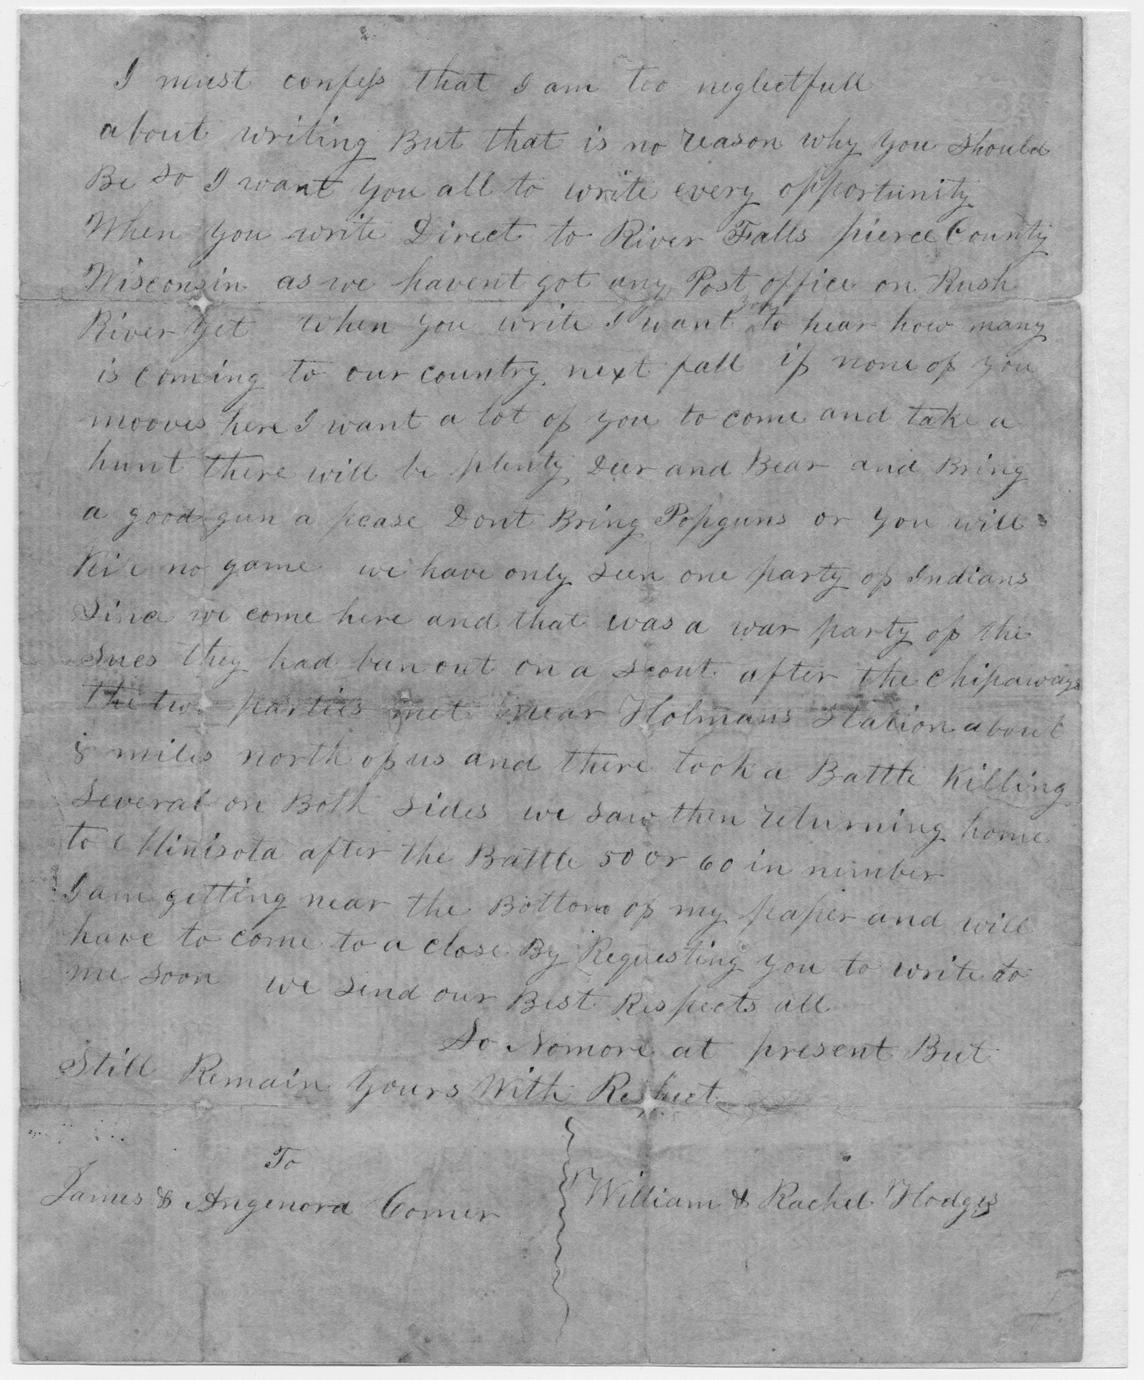 I must confess that I am too neglectfull
about writing But that is no reason why you should
Be so I want you all to write every opportunity
When you write Direct to River Falls pierce County
Wisconsin as we havent got any Post office on Rush
River yet When you write I want to hear how many
is coming to our country next fall if none of you
mooves here I want a lot of you to come and take a
hunt there will be plenty Deer and Bear and Bring
a good gun a pease Dont Bring Popguns or you will
no game we have only seen one party of Indians
Since we come here and that was a war party of the
Sues they had ben out on a scout after the Chipaways
the two parties met near Holmans Station about
miles north of us and there took a Battle Killing
Several on Both sides we saw then returning home
to Minisota after the Battle 50 or 60 in number
I am getting near the Bottom of my paper and will
have to come to a close By Requesting you to write to
me soon we send our Best Respects all
So Nomore at present But
Still Remain Yours With Respect
To
James & Angenora Comer
William & Rachel Hodges